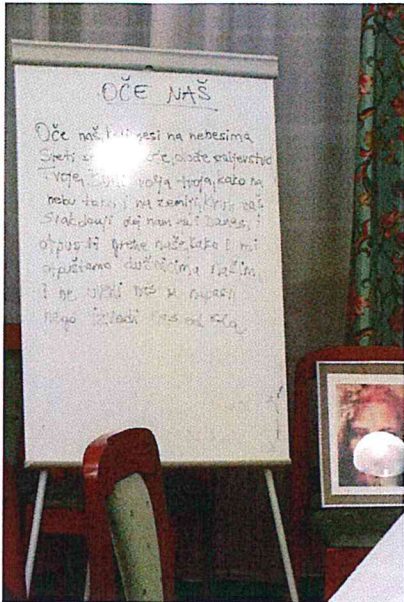 OČE NAŠ
Oče naš koji jesi na nebesima
Sveti dođe kraljevstvo
tvoje, volja tvoja, kako na
nebu tako i na zemlji, kruh naš
Svakdanji daj nam i danas, i
otpusti grehe naše, kako i mi
otpuštamo dužnicima našim,
I ne uvedi nas u napast
nego izbavi nas od zla